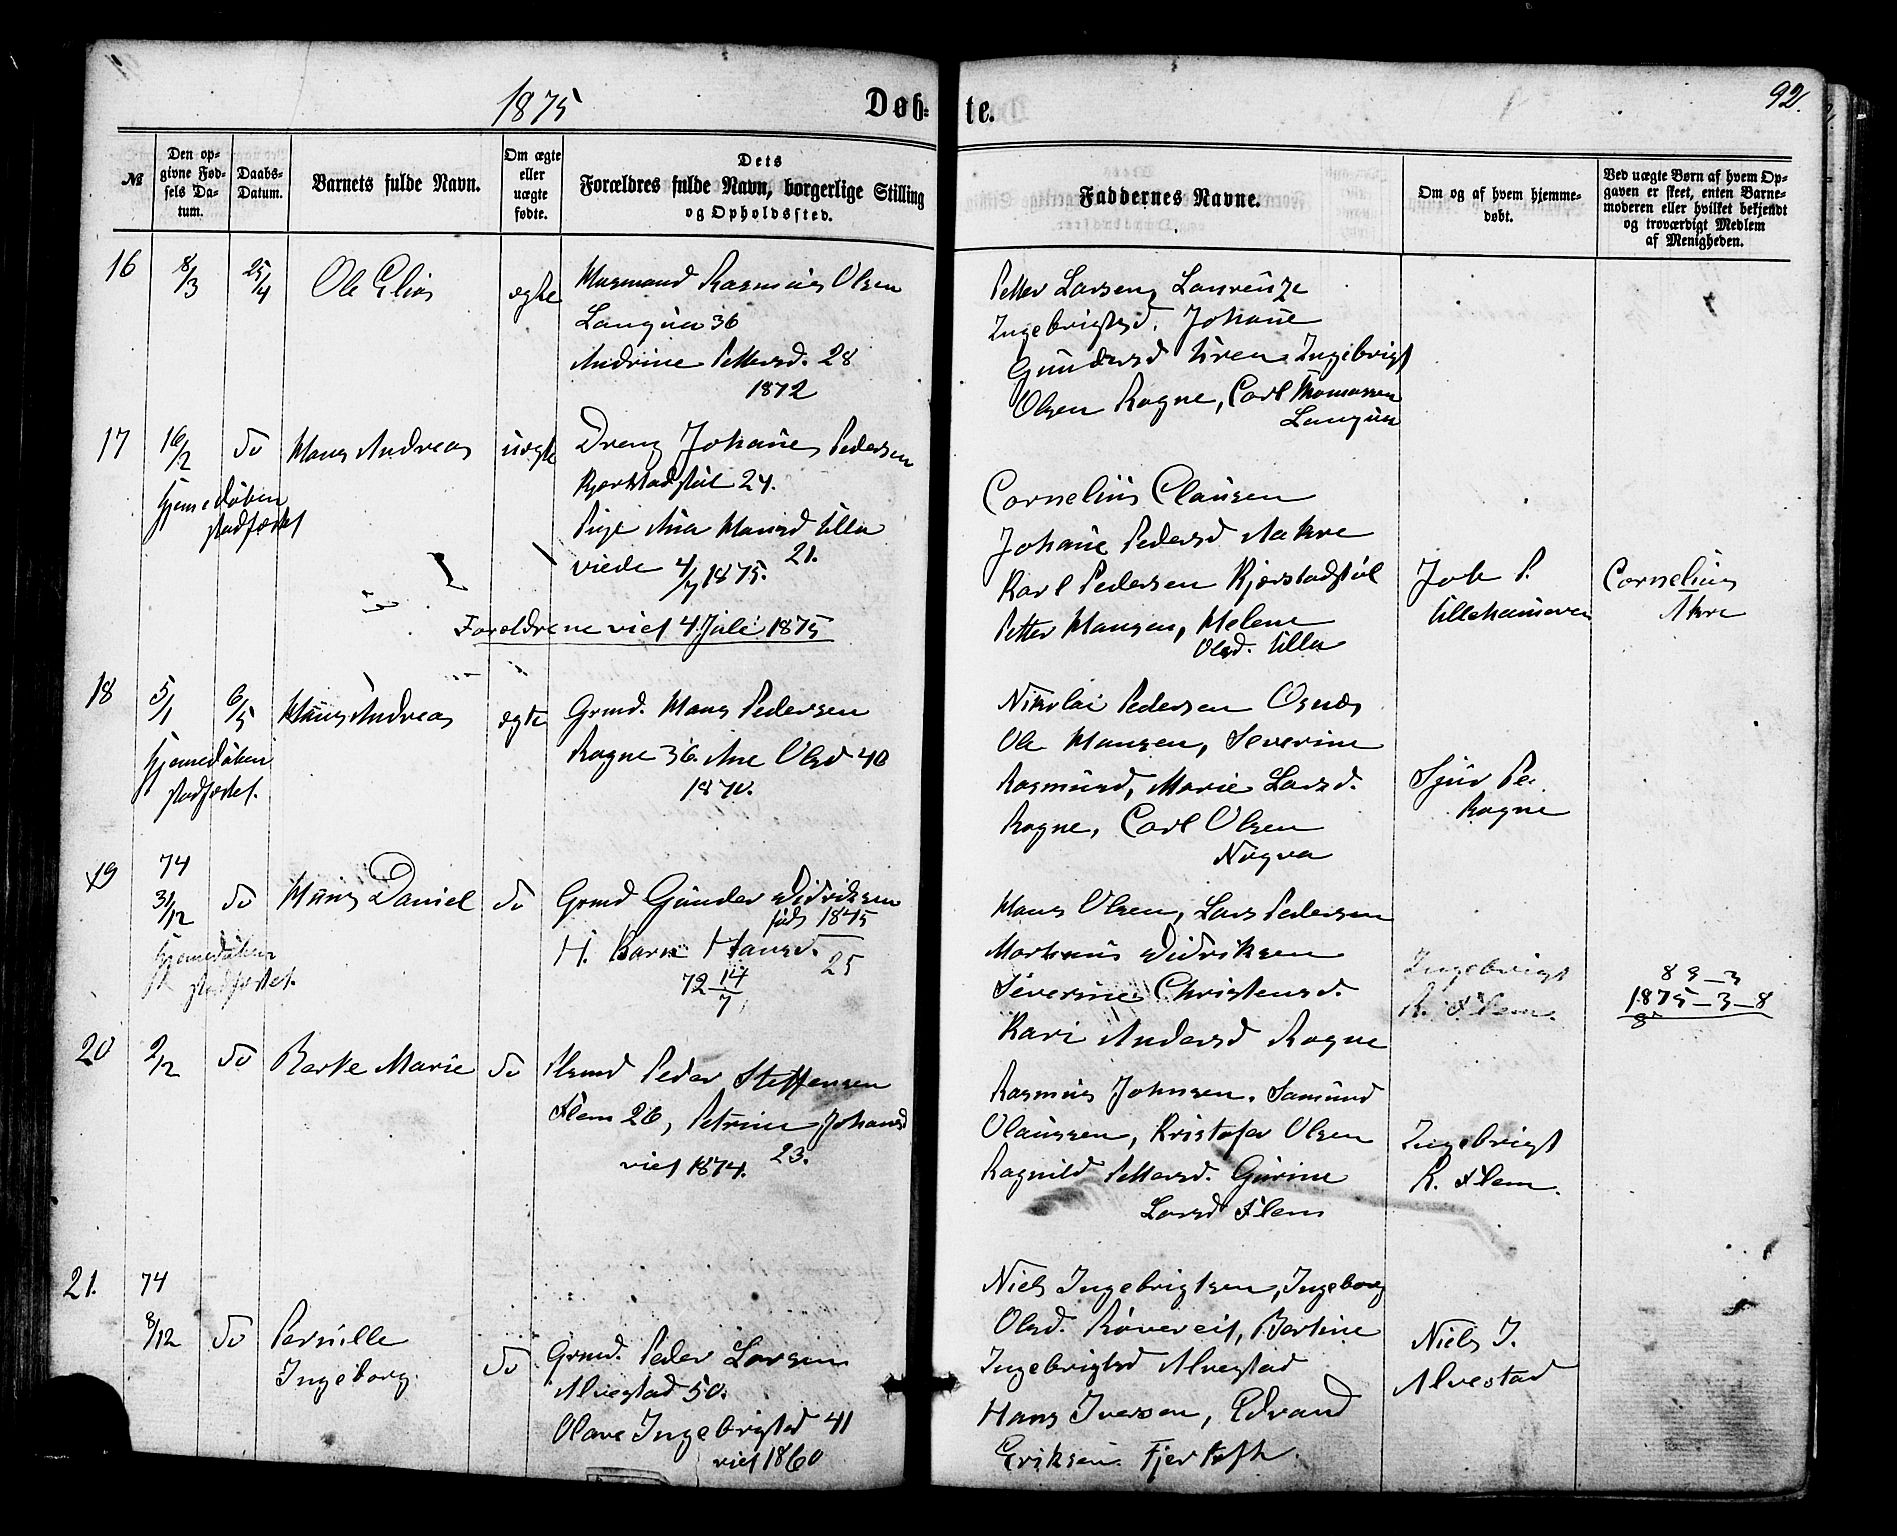 1875
Døb-
te.
92.
№
Den op-
givne Fød-
sels Da-
tum.
Daabs-
Datum.
Barnets fulde Navn.
Om ægte
eller
uægte
fødte.
Dets
Forældres fulde Navn, borgerlige Stilling
og Opholdssted.
Faddernes Navne.
Om og af hvem hjemme-
døbt.
Ved uægte Børn af hvem Op-
gaven er skeet, enten Barne-
moderen eller hvilket bekjendt
og troværdigt Medlem
af Menigheden.
16
8/3
25/4
Ole Elias
ægte
Husmand Rasmus Olsen
Longva 36
Andrine Pettersd. 28
1872
Petter Larsen, Laurentze
Ingebrigtsd. Johane
Gundersd Uren Ingebrigt
Olsen Rogne, Carl Thomassen
Longva
17
16/2
do
Hans Andreas
uægte
Hjemmedåben
stadfæstet
Dreng Johan Pedersen
Kjærstadstøl 24.
Pige Ana Hansd Ulla
21.
viede 4/7 1875.
Forældrene viet 4 Juli 1875
Cornelius Clausen
Johane Pedersd Aakre
Karl Pedersen Kjærstadstøl
Petter Hansen, Helene
Olsd. Ulla
Joh P.
Ullehameren
Cornelius
Akre
18
5/1
6/5
Hans Andreas
ægte
Hjemmedåben
stadfæstet.
Grmd. Hans Pedersen
Rogne 36. Ane Olsd 40
1870.
Nikolai Pedersen Osnæs
Ole Hansen, Severine
Rasmusd, Marie Larsd.
Rogne, Carl Olsen
Nogva
Sjur Pe.
Rogne
19
74
31/12
do
Hans Daniel
do
Hjemmedåben
stadfæstet.
Grmd Gunder Didriksen
født 1845
H. Karn Hansd. 25
72 14/7
Hans Olsen, Lars Pedersen
Martinus Didriksen
Severine Christensd.
Kari Andersd Rogne
Ingebrigt
R. Flem.
89-3
1875-3-8
8
20
2/2
do
Berte Marie
do
Husmd Peder Steffensen
Flem 26, Petrine Johansd
23.
viet 1874.
Rasmus Johnsen, Samund
Olaussen, Kristofer Olsen
Ragnild Pettersd. Gurine
Larsd Flem
Ingebrigt
R. Flem.
21.
74
8/12
do
Pernille
Ingeborg.
do
Grmd. Peder Larsen
Alvestad 50.
Olave Ingebrigtsd 41
viet 1860
Niels Ingebrigtsen, Ingeborg
Olsd. Røvereit, Bertine
Ingebrigtsd Alvestad
Hans Iversen, Edvard
Eriksen Fjertoft.
Niels I.
Alvestad